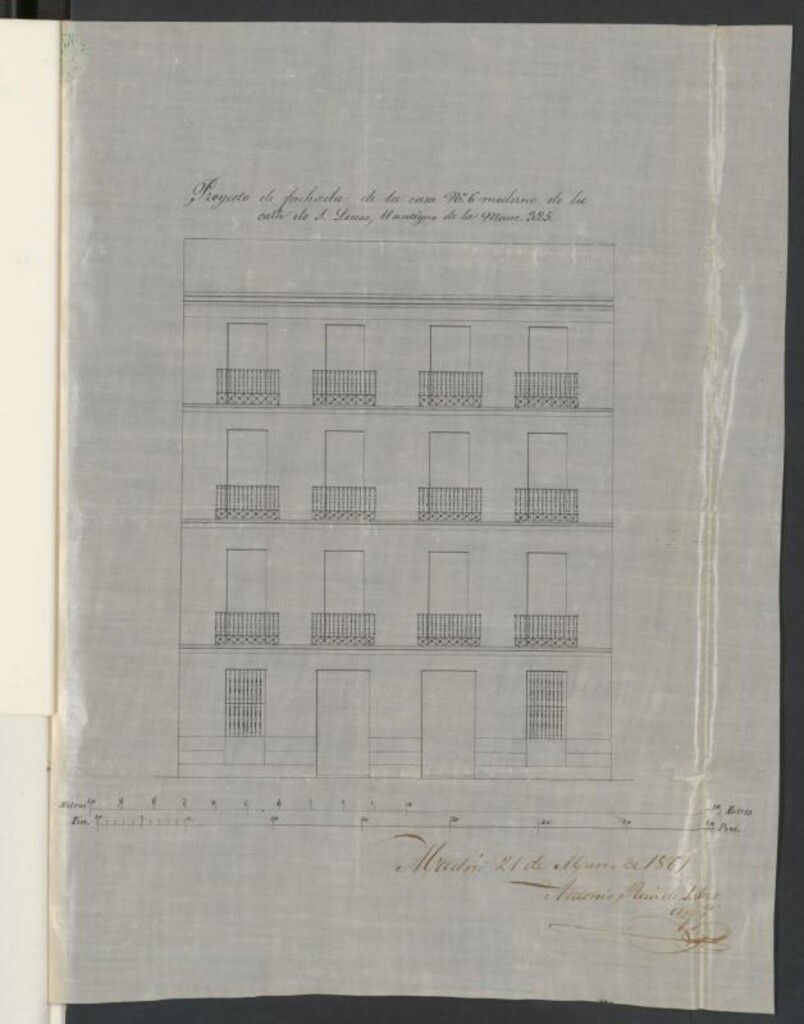 Proyecto de fachada de la casa Nº. 6 moderno de la
calle de S. Lucas, 11 antiguo de la Manz. 325.
Metros 10 9 8 7 6 5 4 3 2 1 0 10 Metros
Pies. 10 0 10 20 30 40 Pies.
Madrid 21 de de 1861
Antonio Ruiz de